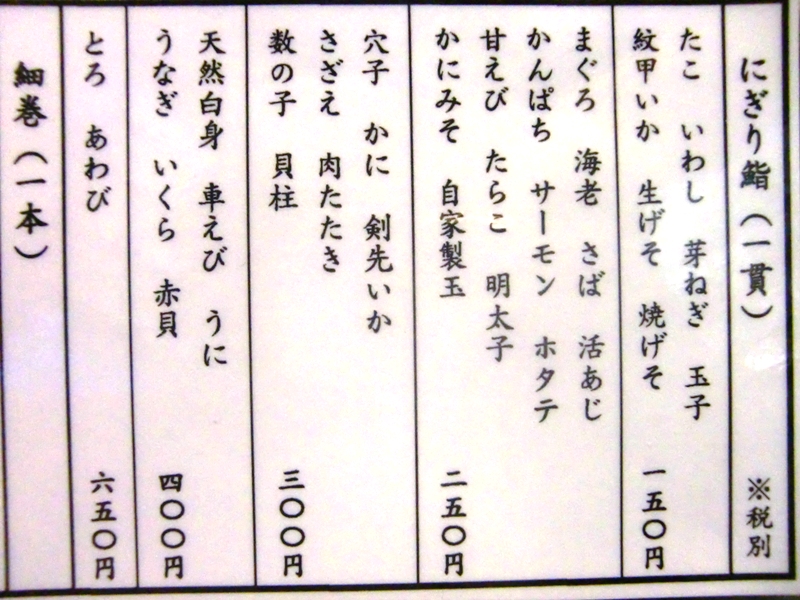 にぎり鮨（一貫） ※税別
たこ いわし 芽ねぎ 玉子
紋甲いか 生げそ 焼げそ 一五〇円
まぐろ 海老 さば 活あじ
かんぱち サーモン ホタテ
甘えび たらこ 明太子
かにみそ 自家製玉 二五〇円
穴子 かに 剣先いか
さざえ 肉たたき
数の子 貝柱 三〇〇円
天然白身 車えび うに
うなぎ いくら 赤貝 四〇〇円
とろ あわび 六五〇円
細巻（一本）